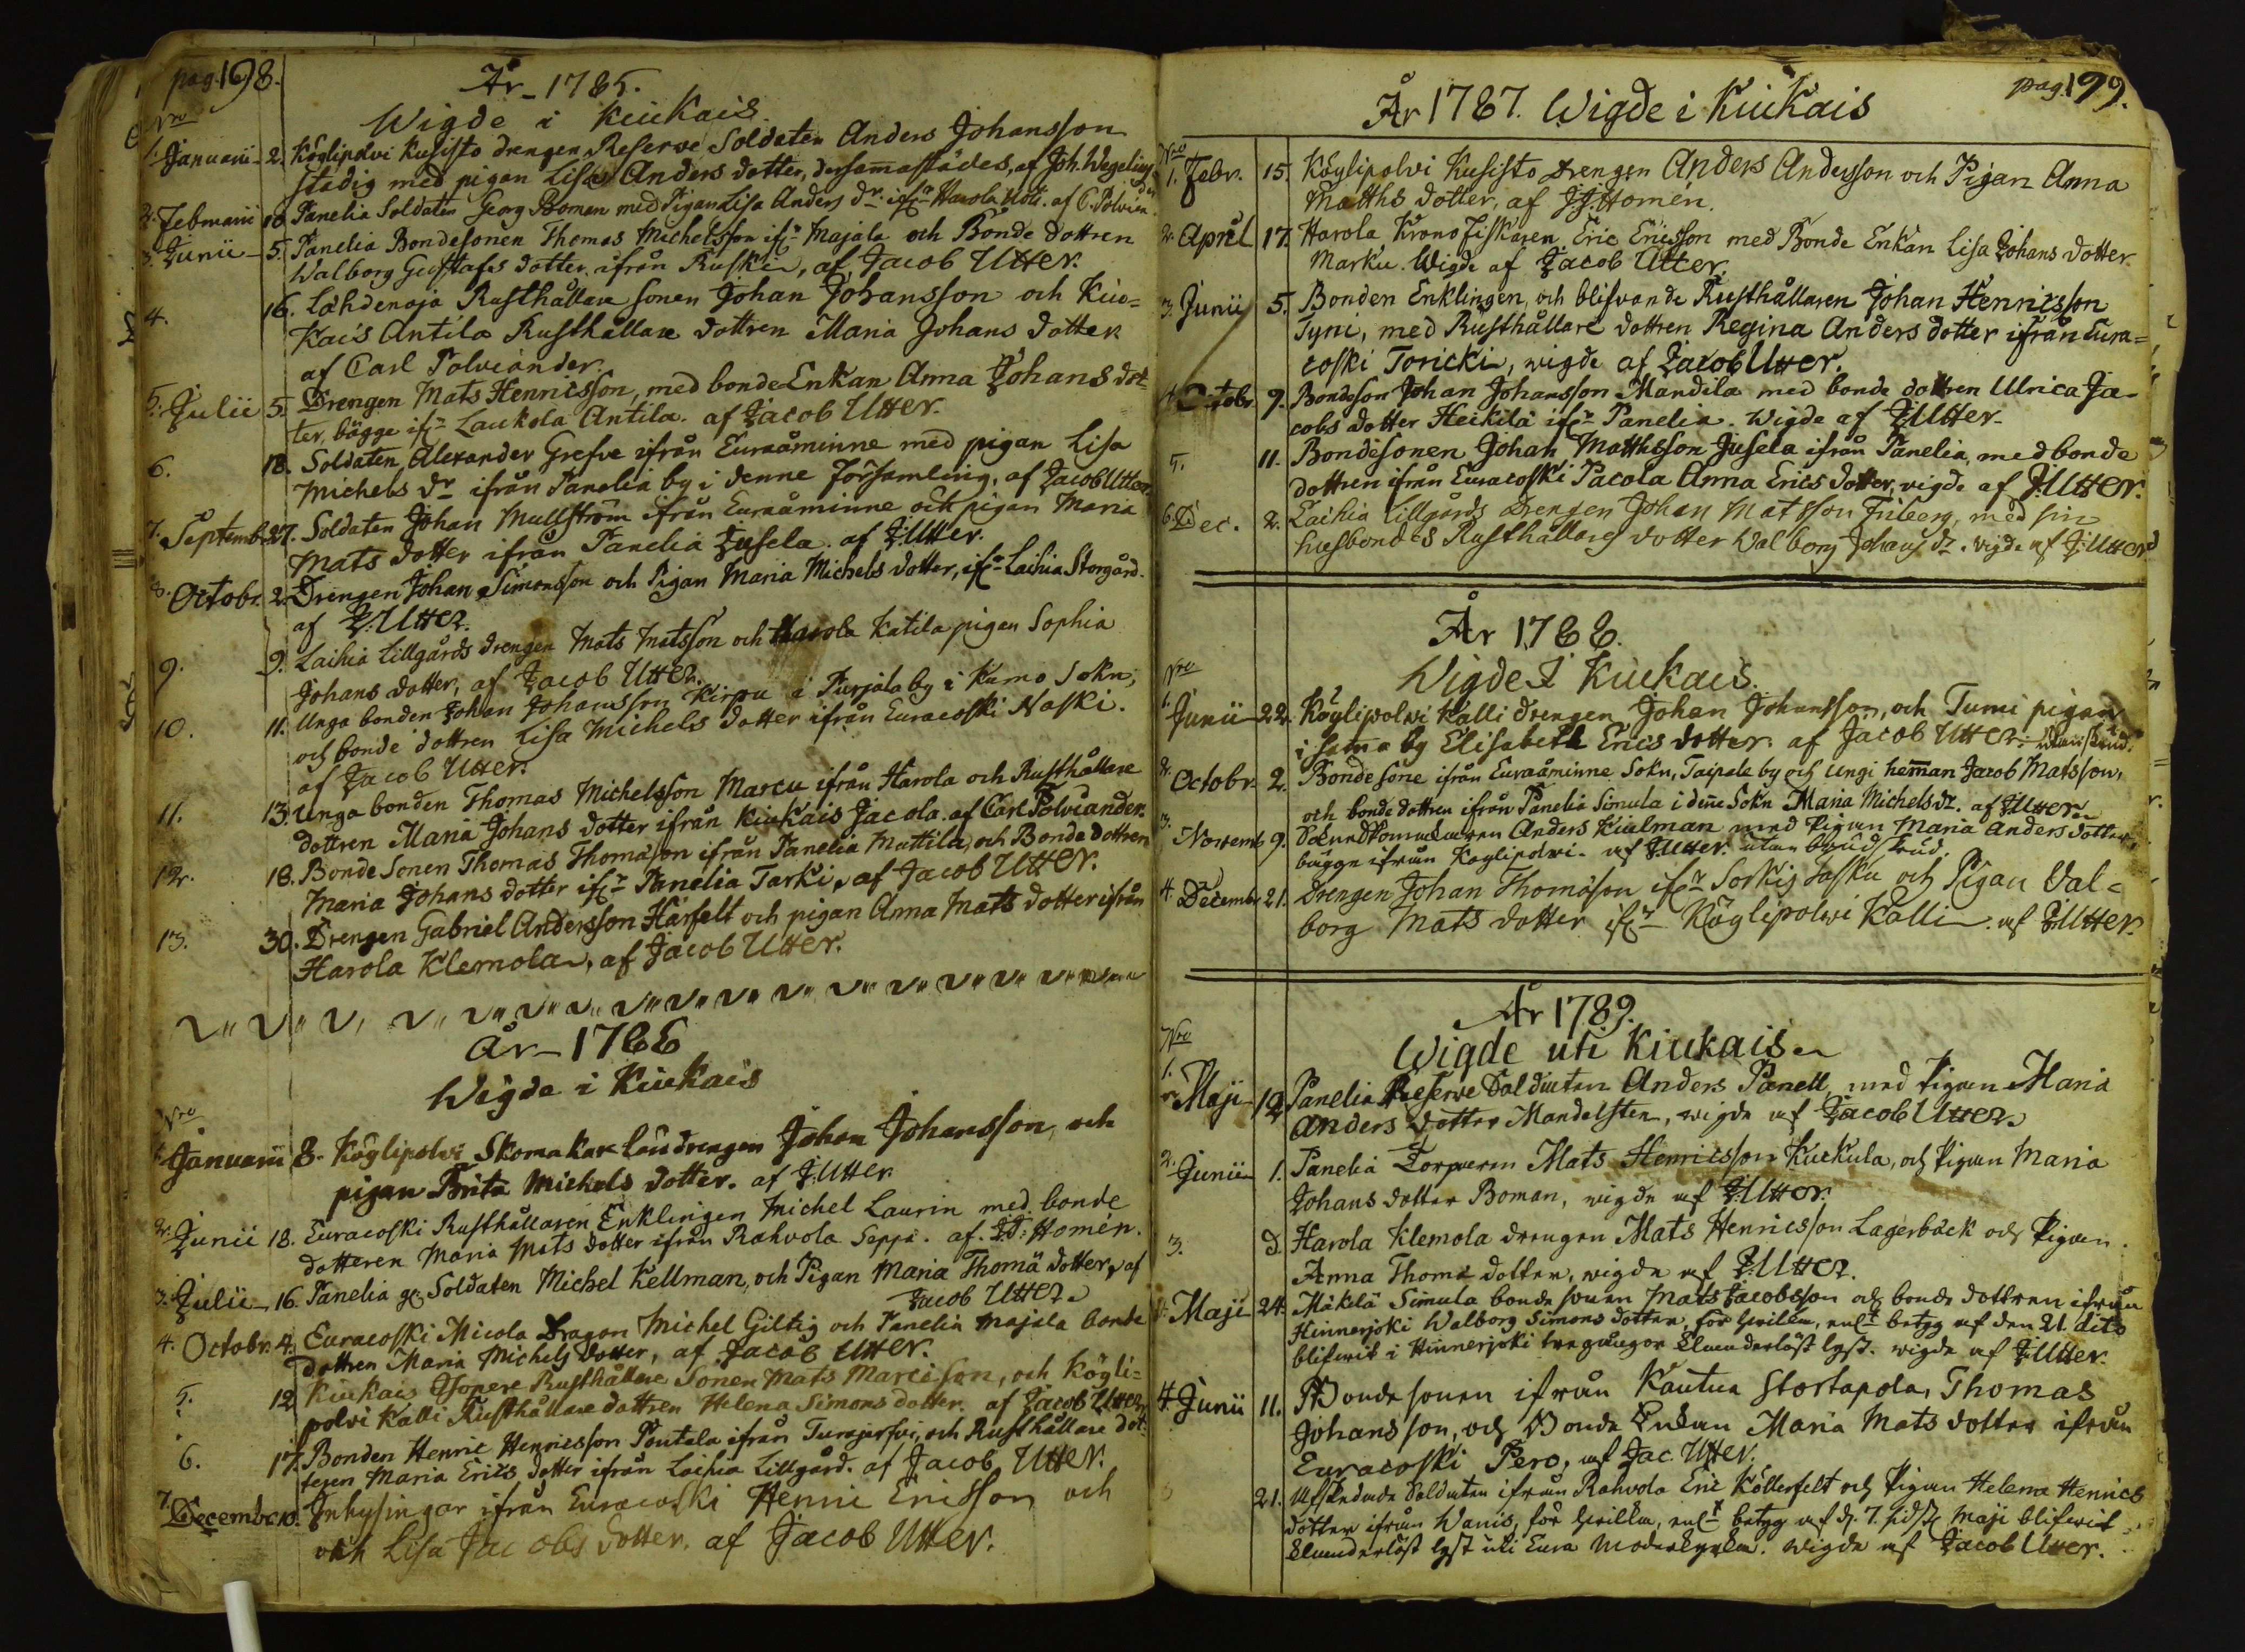 pag. 198.
År 1785.
Wigde i Kiukais
Nro
1. Januarii 2. Köylipolvi Kusisto drengen, Reserve Soldaten Anders Johansson
stadig med pigan Lisa Anders dotter, dersamastädes, af Joh. Wegelius
2. Februarii 10. Panelia Soldaten Georg Boman med Pigan Lisa Anders dr. ifrn Harola af C. Polvian
3. Junii 5. Panelia Bondesonen Thomas Michelsson ifrn Majala och Bonde dottren
Walborg Gustafs dotter ifrån Ruski, af Jacob Utter.
4. 16. Lähdenoja Rusthållare sonen Johan Johansson och Kiu=
kais Antila Rusthållare dottren Maria Johans dotter
af Carl Polviander.
5. Julii 5. Drengen Mats Henricsson, med bonde Enkan Anna Johans dot-
ter, bägge ifrn Laukola Antila. af Jacob Utter.
6. 18. Soldaten Alexander Grefve ifrån Euraåminne med pigan Lisa
Michels dr ifrån Panelia by i denne Församling, af Jacob Utter.
7. Septemb. 27. Soldaten Johan Mullström ifrån Euraåminne och pigan Maria
Mats dotter ifrån Panelia Jusela. af J: Utter.
8. Octobr. 2. Drengen Johan Simonsson och Pigan Maria Michels dotter, ifrn Laihia Storgård.
af J: Utter.
9. 9. Laihia Lillgårds drengen Mats Matsson och Harola Katila pigan Sophia
Johans dotter, af Jacob Utter.
10. 11. Unga bonden Johan Johansson Kirppu i Purjala by i Kumo Sokn,
och bonde dottren Lisa Michels dotter ifrån Euracoski Naski.
af Jacob Utter.
11. 13. Unga bonden Thomas Michelsson Marcu ifrån Harola och Rusthållare
dottren Maria Johans dotter ifrån Kiukais Jacola. af Carl Polviander.
12. 18. Bonde Sonen Thomas Thomasson ifrån Panelia Mattila, och Bonde dottren
Maria Johans dotter ifrn Panelia Tarki, af Jacob Utter.
13. 30. Drengen Gabriel Andersson Härfelt och pigan Anna Mats dotter ifrån
Harola Klemola, af Jacob Utter.
År 1786
Wigde i Kiukais
Nro
1. Januarii 8. Köylipolvi Skomakare drengen Johan Johansson, och
pigan Brita Michels dotter. af J: Utter
2. Junii 18. Euracoski Rusthållaren Enklingen Michel Laurin med bonde
dotteren Maria Mats dotter ifrån Rahvola Seppä. af. J: Homén.
3. Julii 16. Panelia Soldaten Michel Kellman, och Pigan Maria Thomä dotter, af
Jacob Utter.
4. Octobr. 4. Euracoski Micola Dragon Michel Giltig och Panelia Majala bonde
dottren Maria Michels dotter, af Jacob Utter.
5. 12 Kiukais Rusthållare Sonen Mats Marcisson, och Köyli=
polvi Kalli Rusthållare dottren Helena Simons dotter. af Jacob Utter
6. 17. Bonden Henric Henricsson Pontala ifrån Turajerfvi, och Rusthållare dot-
teren Maria Erics dotter ifrån Laihia Lillgård. af Jacob Utter.
7. December 10. Inhysingar ifrån Euracoski Henric Ericsson och
och Lisa Jacobs dotter. af Jacob Utter.
pag. 199.
År 1787. Wigde i Kiukais
Nro
1. Febr. 15. Köylipolvi Kusisto drengen Anders Andersson och Pigan Anna
Matths dotter, af J: Homén.
2. April 17. Harola Krono Fiskaren Eric Ericsson med Bonde Enkan Lisa Johans dotter
Marku. Wigde af Jacob Utter.
3. Junii 5. Bonden Enklingen, och blifvande Rusthållaren Johan Henricsson
Tyni, med Rusthållare dottren Regina Anders dotter ifrån Eura=
coski Toricki, wigde af Jacob Utter.
4. Octobr 9. Bondeson Johan Johansson Mandila med bonde dottren Ulrica Ja-
cobs dotter Heikilä ifrn Panelia. Wigde af J: Utter.
5. 11. Bondesonen Johan Matthsson Jusela ifrån Panelia, med bonde
dottren ifrån Euracoski Pacola Anna Erics dotter, vigde af J: Utter.
6. Dec. 2. Laihia Lillgårds drengen Johan Matsson Friberg, med sin
husbondes Rusthållares dotter Walborg Johans dr. vigde af J: Utter
År 1788.
Wigde I Kiukais.
Nro
1. Junii 22. Köylipolvi Kalli drengen Johan Johansson, och Tumi pigan
i sama by Elisabeth Erics dotter. af Jacob Utter.
2. Octobr. 2. Bonde sone ifrån Euraåminne Sokn, Taipale by och Ungi heman Jacob Matsson,
och bonde dottren ifrån Panelia Simula i dene Sokn Maria Michels dr. af J: Utter.
3. Novemb. 9. Anders Kiulman med Pigan Maria Anders dotter,
bägge ifrån Köylipolvi. af J: Utter. utan brudskrud.
4. Decemb. 21. Drengen Johan Thomasson ifrn Sorkis Jaska och Pigan Val=
borg Mats dotter ifrn Köylipolvi Kalli. af J: Utter.
År 1789.
Wigde uti Kiukais
Nro
1. Maji 19 Panelia Reserve Soldaten Anders Panell, med Pigan Maria
Anders dotter Mandelsten, wigde af Jacob Utter.
2. Junii 1. Panelia Torparen Mats Henricsson Kuckula, och Pigan Maria
Johans dotter Boman, wigde af J: Utter.
3. d. Harola Klemola drengen Mats Henricsson Lagerbäck och Pigan
Anna Thomä dotter, wigde af J: Utter.
4. Maji 24. Mäkelä Simula bonde sonen Mats Jacobsson och bonde dottren ifrån
Hinnerjoki Walborg Simons dotter, för hvilka, enlt betyg af den 21. dits
blifvit i Hinnerjoki tregångor klanderlöst lyst. wigde af J: Utter.
4. Junii 11. Bonde sonen ifrån Kautua Stortapola, Thomas
Johansson, och Bonde Enkan Maria Mats dotter ifrån
Euracoski Pero, af Jac. Utter.
21. Afskedade Soldaten ifrån Rahvola Eric Kollerfelt och Pigan Helena Henrics
dotter ifrån Wanis, för hvilka, enlt betyg af d. 7. Maji blifvit
klanderlöst lyst uti Eura Moderkyrka. wigde af Jacob Utter.